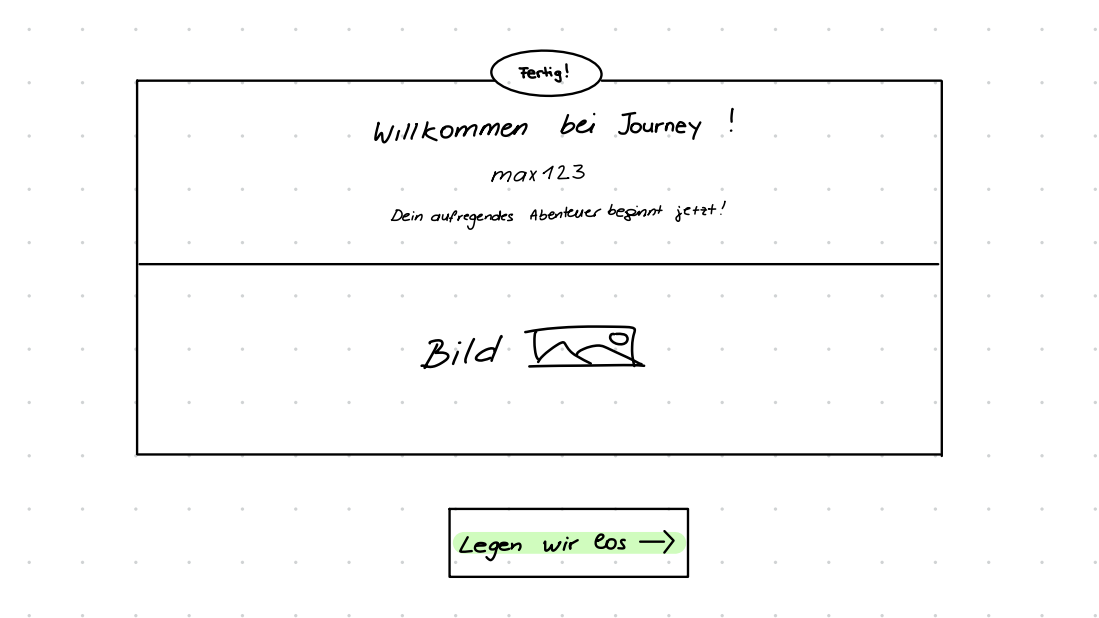 Fertig!
Willkommen bei Journey !
max123
Dein aufregendes Abenteuer beginnt jetzt!
Bild
Legen wir los →